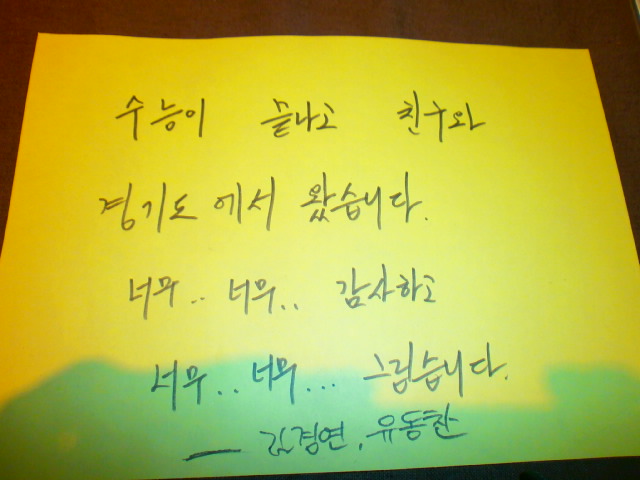 수능이 끝나고 친구와
경기도에서 왔습니다.
너무.. 너무.. 감사하고
너무.. 너무... 그립습니다.
— 김경연, 유동찬